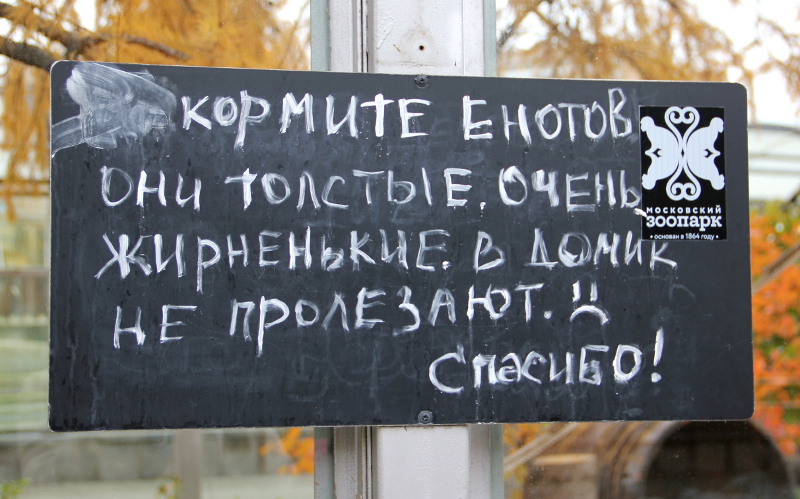 КОРМИТЕ ЕНОТОВ
ОНИ ТОЛСТЫЕ. ОЧЕНЬ
ЖИРНЕНЬКИЕ. В ДОМИК
НЕ ПРОЛЕЗАЮТ. :(
СПАСИБО!
МОСКОВСКИЙ
ЗООПАРК
• основан в 1864 году •